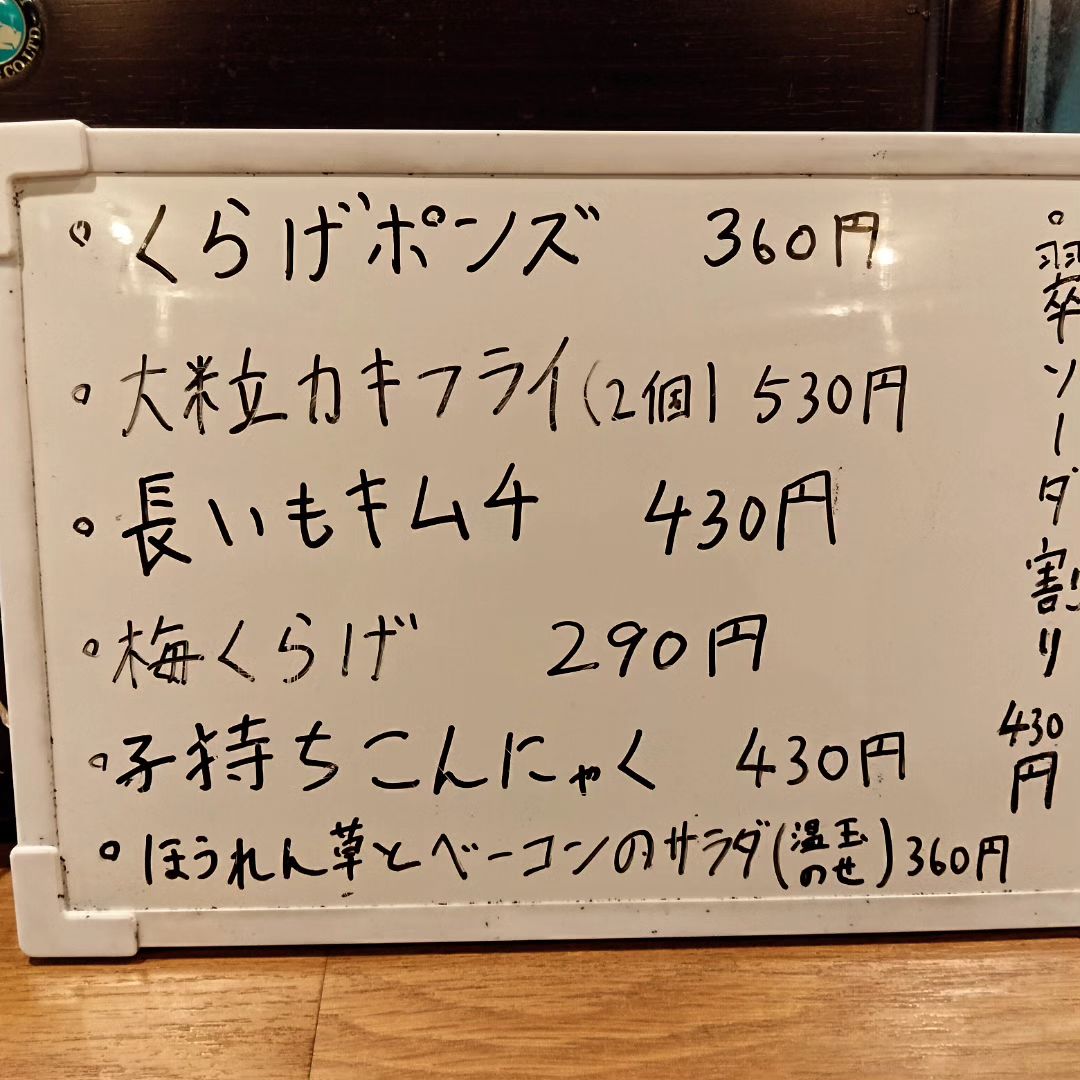 CO.LTD.
・くらげポンズ 360円
・大粒カキフライ(2個) 530円
・長いもキムチ 430円
・梅くらげ 290円
・子持ちこんにゃく 430円
・ほうれん草とベーコンのサラダ(温玉のせ) 360円
・翠ソーダ割り 430円